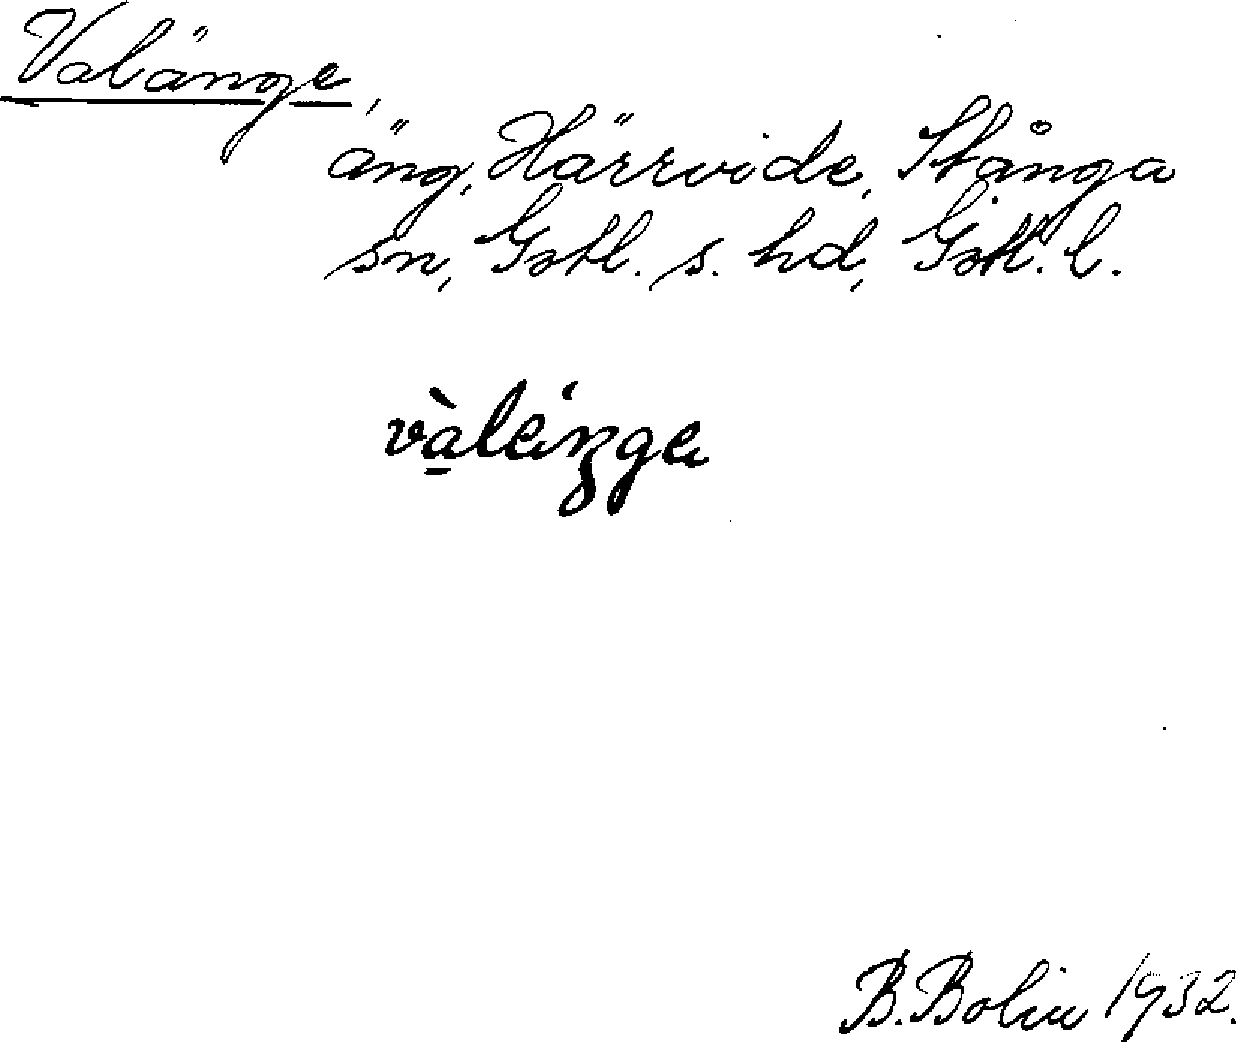 Valänge,
äng, Härrvide, Stånga
sn, Gotl. s. hd, Gotl. l.
vàlèŋge
B. Bolin 1932.